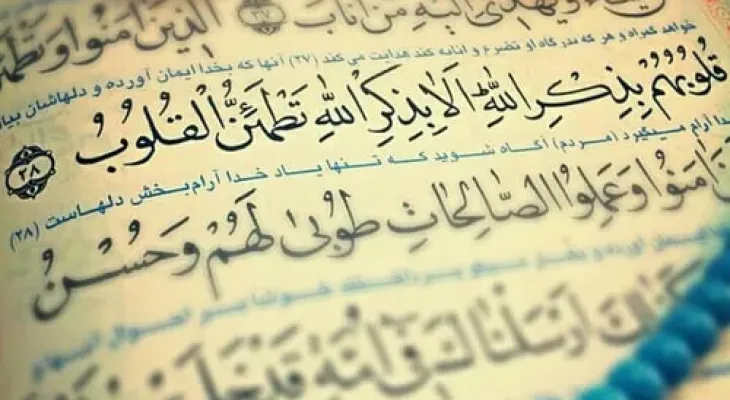 ویهدی الیه من اناب ﴿۲۷﴾ الذین امنوا وتطمئن
خواهد گمراه و هر که بدرگاه او تضرع و انابه کند هدایت می کند (۲۷) آنها که بخدا ایمان آورده و دلهاشان بیاد
قُلُوبُهُمْ بِذِكْرِ اللهِ اَلا بِذِكْرِ اللهِ تَطْمَئِنُّ الْقُلُوبُ ﴿۲۸﴾
خدا آرام میگیرد (مردم) آگاه شوید که تنها یاد خدا آرام‌بخش دلهاست (۲۸)
امَنُوا وَعَمِلُوا الصّالِحاتِ طُوبى لَهُمْ وَحُسْنُ
ایمان آورده و
کذلک ارسلناک فی امة قدخل